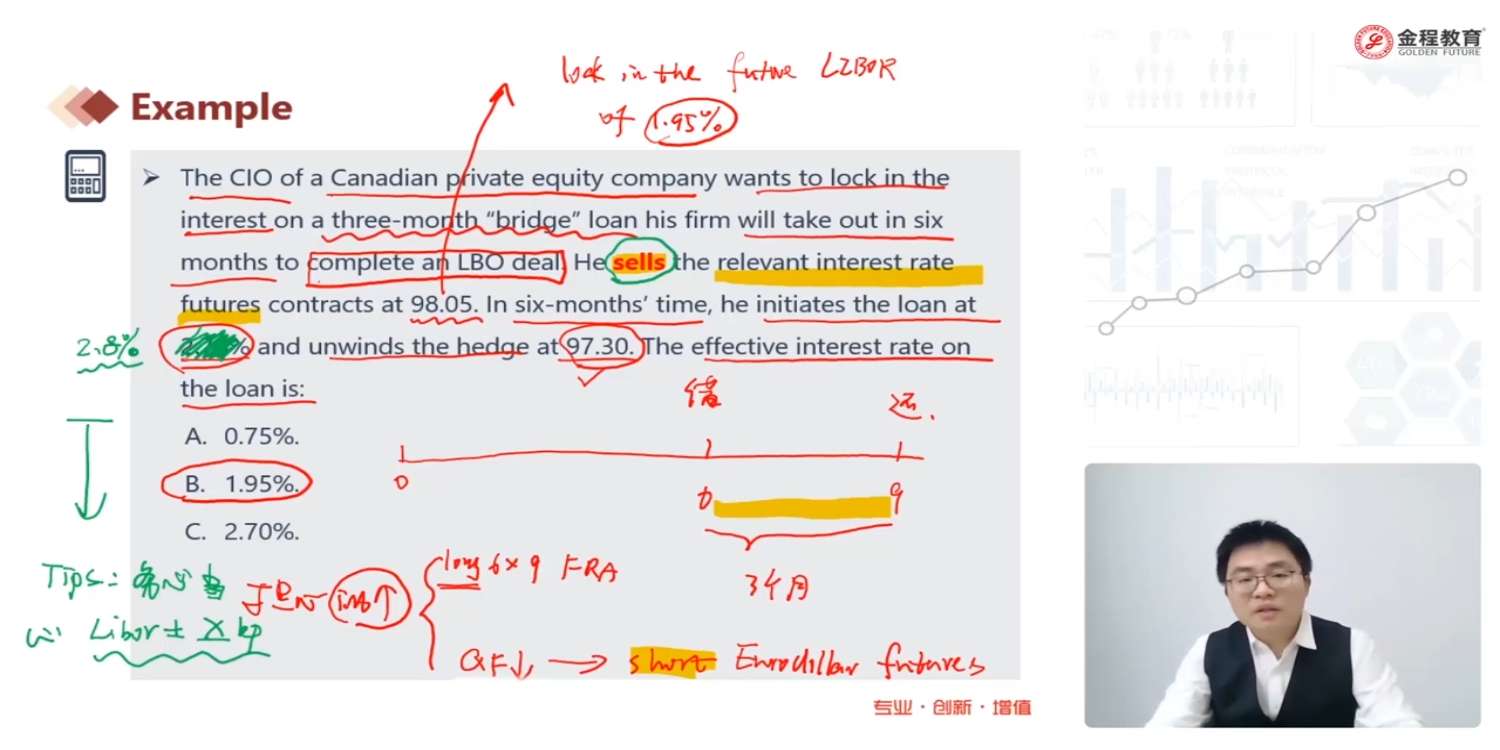 金程教育
GOLDEN FUTURE
lock in the future LIBOR
of 1.95%
Example
➢ The CIO of a Canadian private equity company wants to lock in the
interest on a three-month “bridge” loan his firm will take out in six
months to complete an LBO deal. He sells the relevant interest rate
futures contracts at 98.05. In six-months’ time, he initiates the loan at
2.8%
% and unwinds the hedge at 97.30. The effective interest rate on
the loan is:
A. 0.75%.
B. 1.95%.
C. 2.70%.
借
还.
0
6
9
3个月
Tips:
担心
long 6×9 FRA
Libor ± X bp
QF↓ → short Eurodollar futures
专业·创新·增值